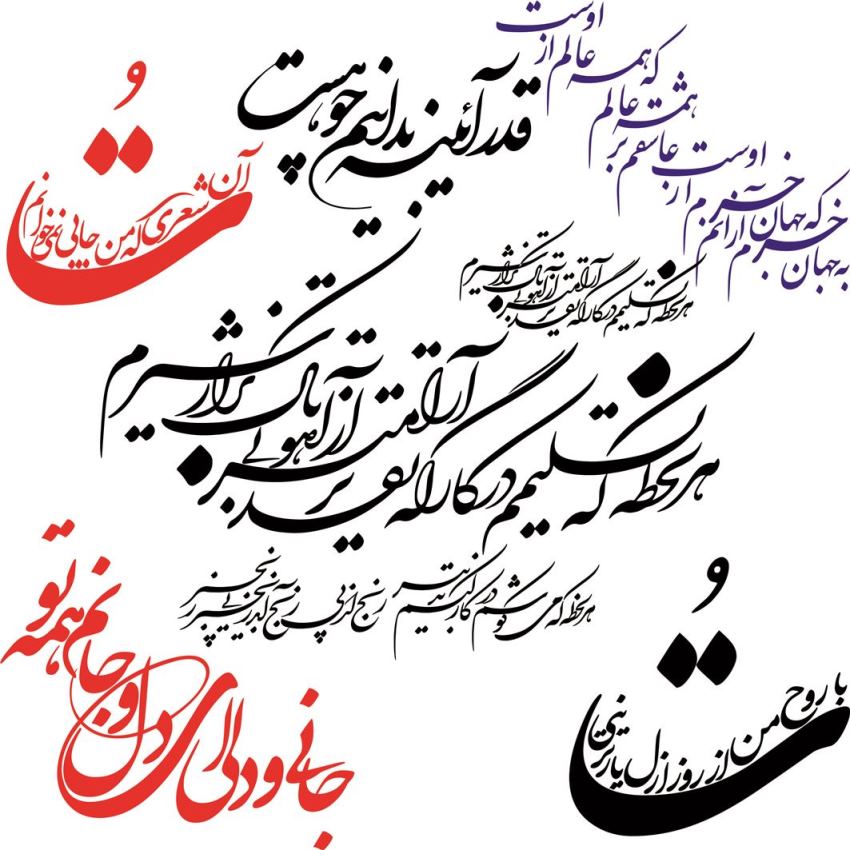 به جهان خرم از آنم که جهان خرم از اوست
عاشقم بر همه عالم که همه عالم از اوست
قدر آئینه بدانیم چو هست
تُ آن شعری که من جایی نمی خوانم
هر لحظه که تسلیمم در کارگه تقدیر
آرامتر از آهو بی باک ترم از شیر
هر لحظه که تسلیمم در کارگه تقدیر
آرامتر از آهو بی باک ترم از شیر
هر لحظه که می کوشم در کار کنم تدبیر
رنج از پی رنج آید زنجیر پی زنجیر
جانی و دلی ای دل و جانم همه تو
تُ با روح من از روز ازل یارترینی